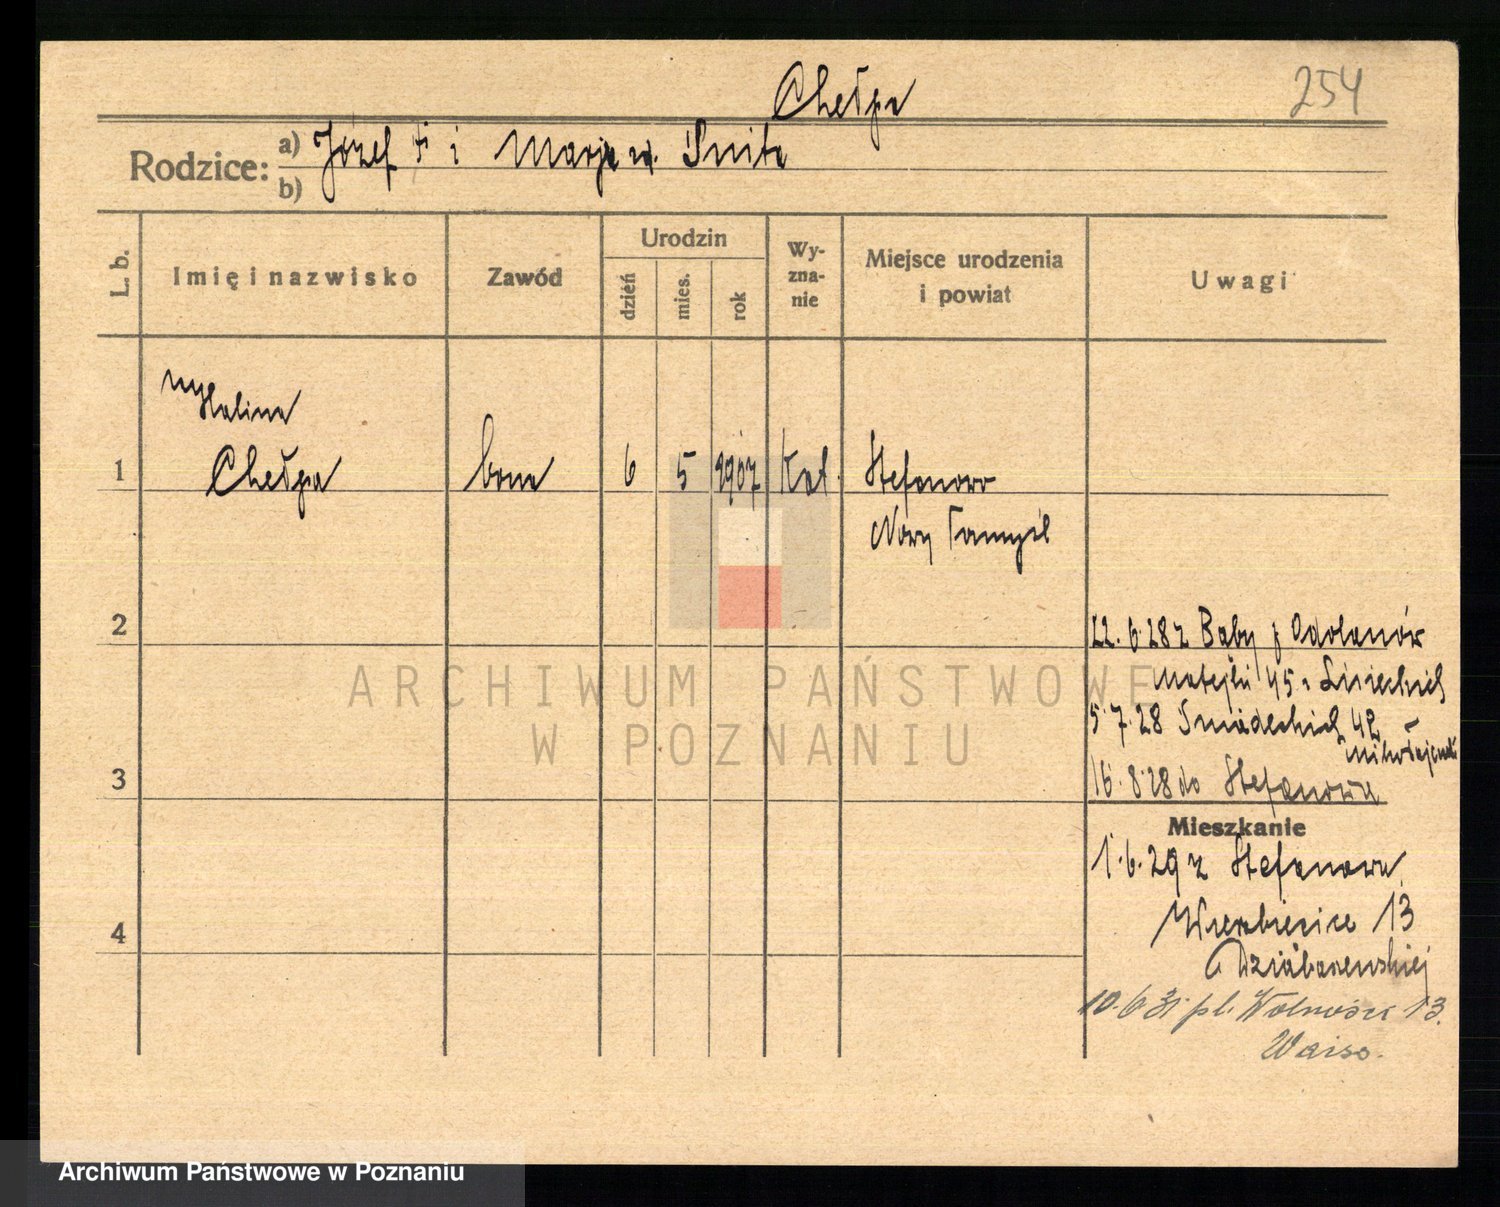 Chełpa
254
Rodzice:
a) Józef i Marja
b)
L. b.
Imię i nazwisko
Zawód
Urodzin
dzień
mies.
rok
Wy-
zna-
nie
Miejsce urodzenia
i powiat
Uwagi
Halina
1 Chełpa bona 6 5 1907 Kat. Stefanowo
Nowy Tomyśl
2
22.6.28 z Baby p Odolanów
Matejki 45
5.7.28 Śniadeckich 42
3
16.8.28 do Stefanowa
Mieszkanie
1.6.29 z Stefanowa
4
Wierzbięcice 13
10.6.31 pl. Wolności 13.
ARCHIWUM PAŃSTWOWE
W POZNANIU
Archiwum Państwowe w Poznaniu